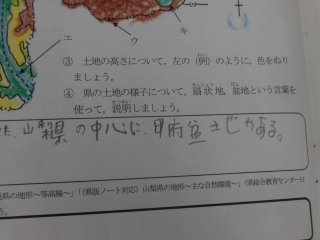 エ
ウ
キ
③ 土地の高さについて，左の（例）のように，色をぬり
ましょう。
④ 県の土地の様子について，扇状地，盆地という言葉を
使って，説明しましょう。
た、山梨県の中心に、甲府盆土せがある。
県の地形～等高線～」「（県版ノート対応）山梨県の地形～主な自然環境～」（県総合教育センターH